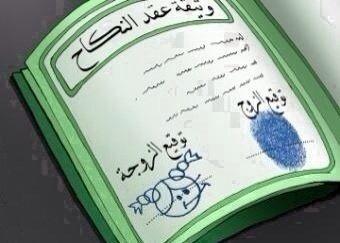 وثيقة عقد النكاح
توقيع الزوج
توقيع الزوجة